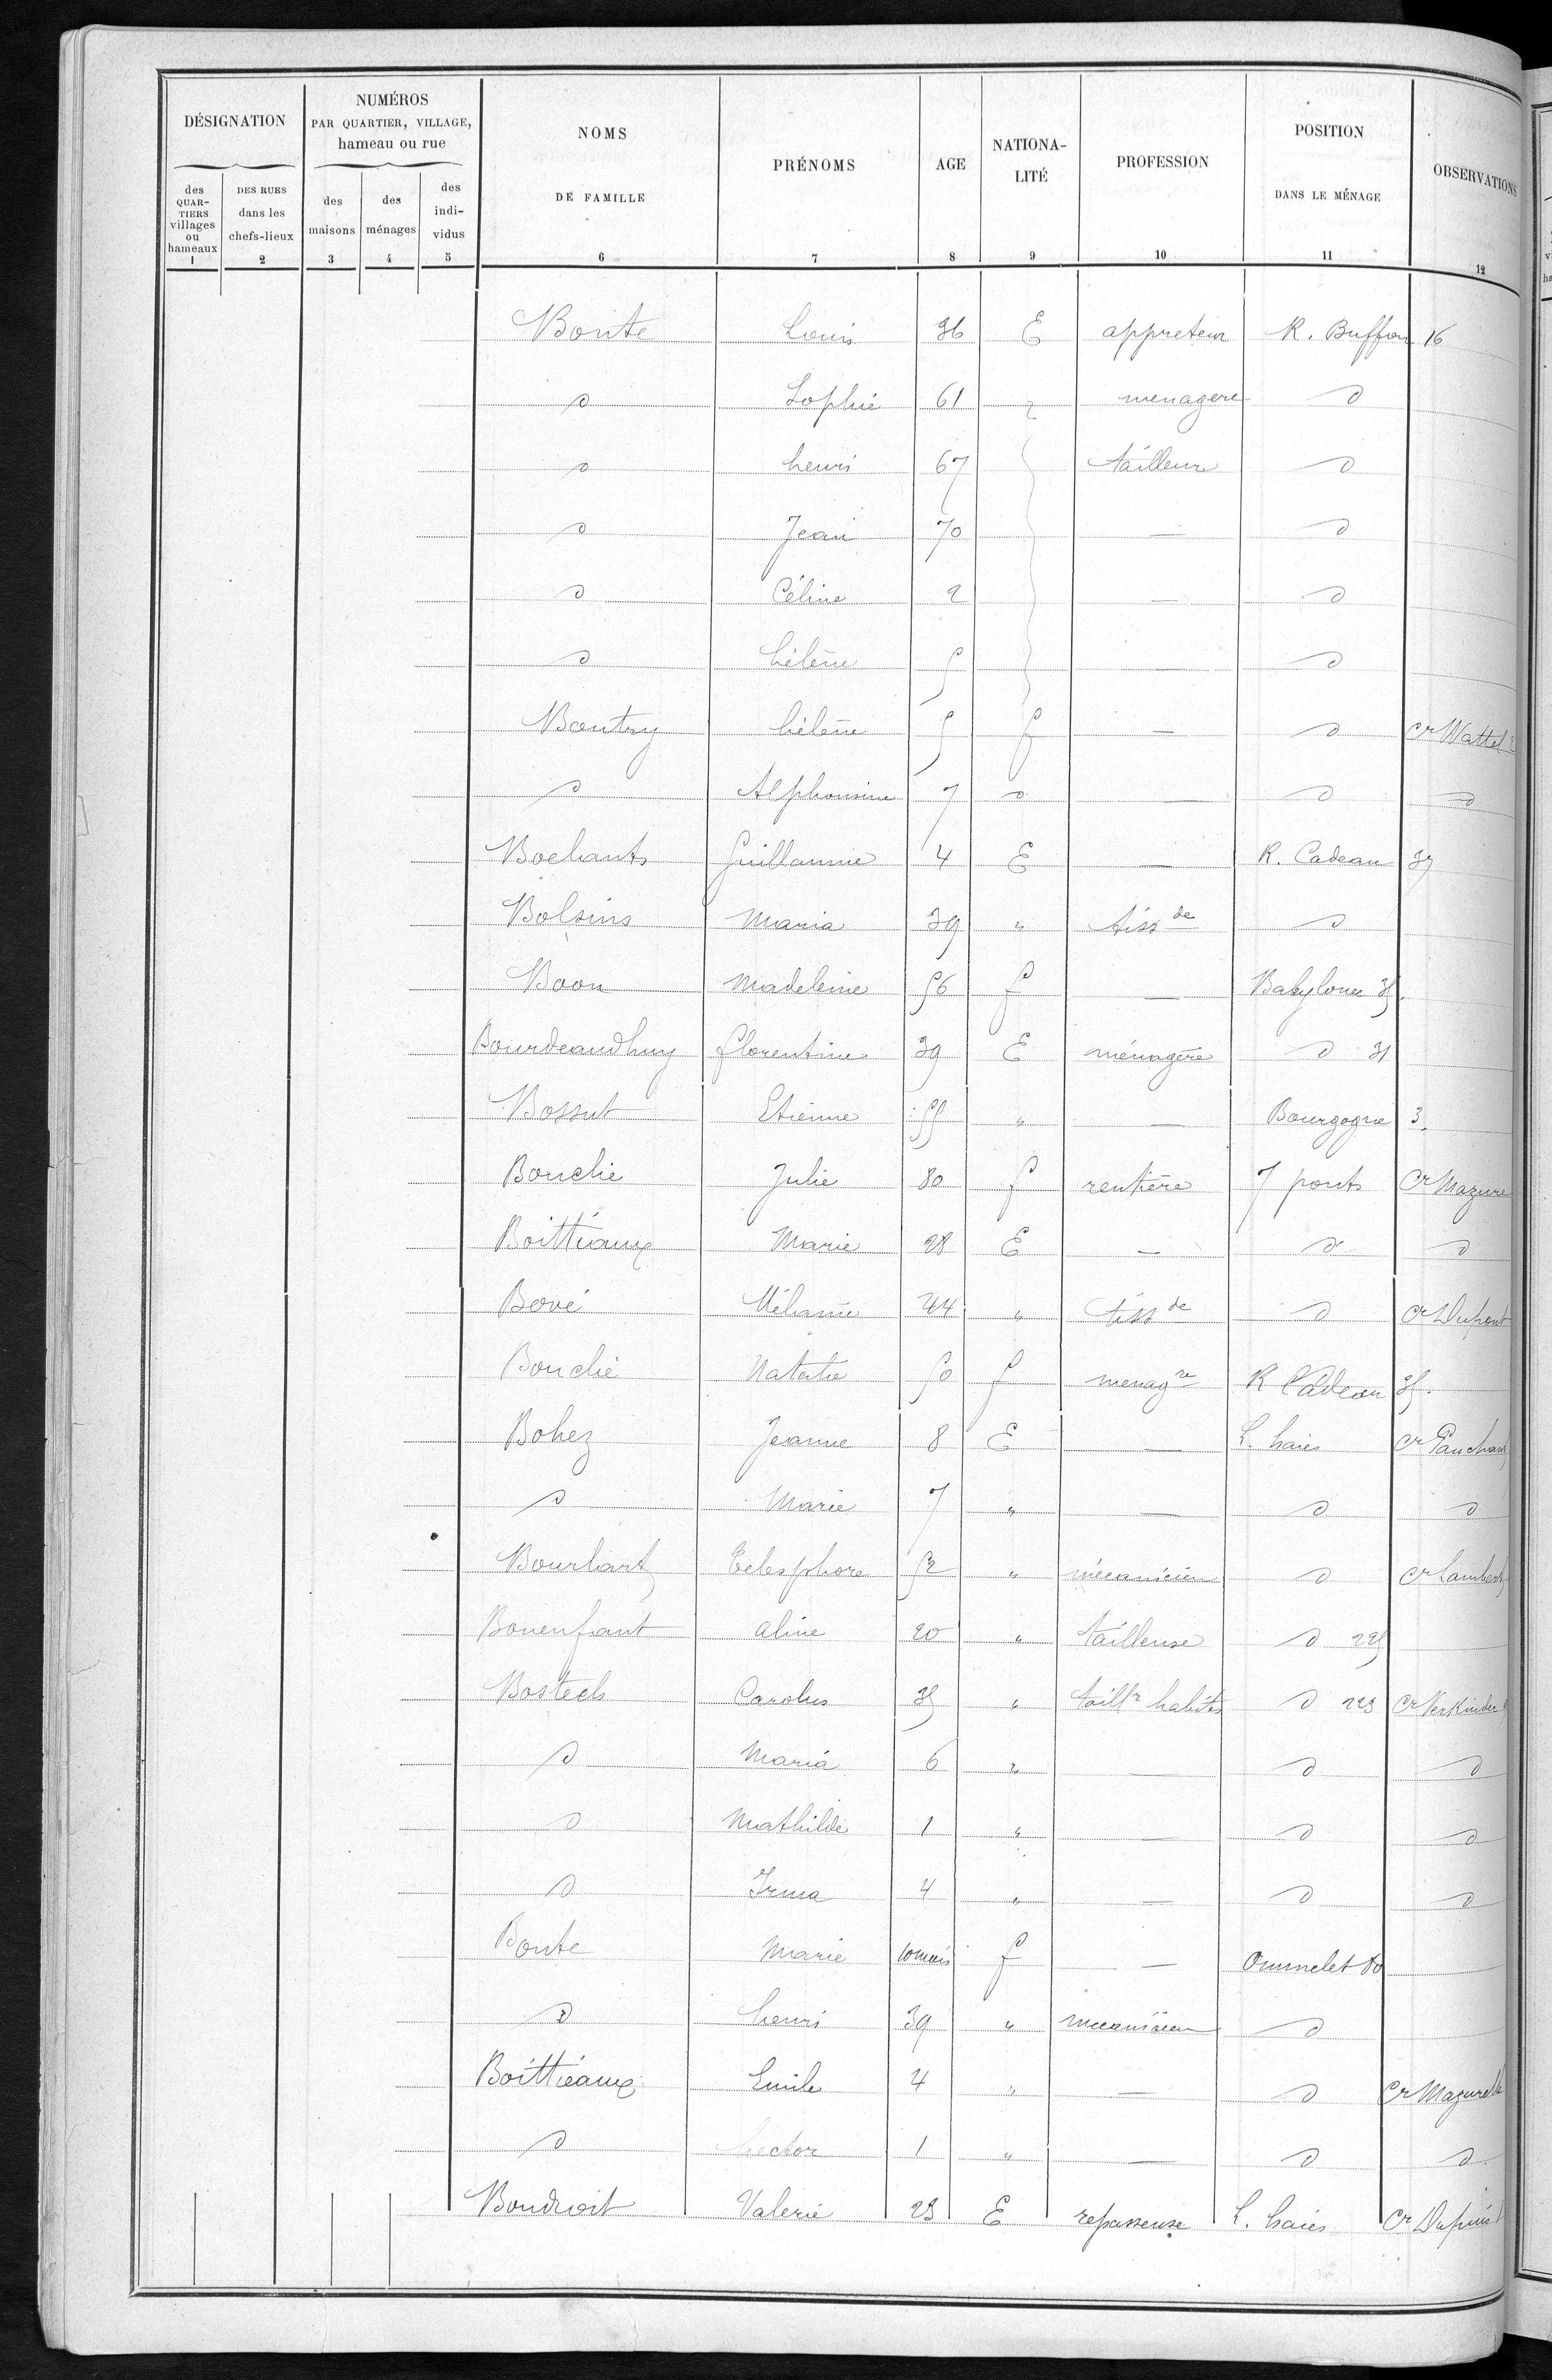 DÉSIGNATION NUMÉROS PAR QUARTIER, VILLAGE, hameau ou rue NOMS DE FAMILLE PRÉNOMS AGE NATIONA-LITÉ PROFESSION POSITION DANS LE MÉNAGE OBSERVATIONS
des QUAR-TIERS villages ou hameaux DES RUES dans les chefs-lieux des maisons des ménages des indi-vidus
1 2 3 4 5 6 7 8 9 10 11 12
Bonte Louis 36 E appreteur R. Buffon 16
d Sophie 61 " menagere d
d henri 67 tailleur d
d Jean 70 — d
d Céline 2 — d
d hélène 5 — d
Boutry hélène 5 f — d Cr Wattel
d Alphonsine 7 d — d d
Guillaume 4 E — R. Cadeau 37
Bolsins Maria 39 " tissde d
Boon Madeleine 56 f — Babylone 35.
Bourdeaudhuy florentine 39 E ménagère d 31
Bossut Etienne 55 " — Bourgogne 3.
Bouchie Julie 80 f rentière 7 ponts Cr Mazure
Boittiaux Marie 28 E — d d
Bové Mélanie 44 " tissde d Cr Dupont
Bouchie Natalie 50 f menagre R Cadeau 35.
Bohez Jeanne 8 E — L. haies
d Marie 7 " — d d
Telesphore 52 " mécanicien d Cr Lambert
Bonenfant aline 20 " tailleuse d 225
Carolus 35 " taillr habits d 223 Cr Verkinder
d Maria 6 " — d d
d Mathilde 1 " — d d
d Irma 4 " — d d
Bonte Marie 10 mois f — Ommelet 80
d henri 39 " mecanicien d
Boittieaux Emile 4 " — d
d hector 1 " — d d
Boudroit Valerie 23 E repasseuse L. haies